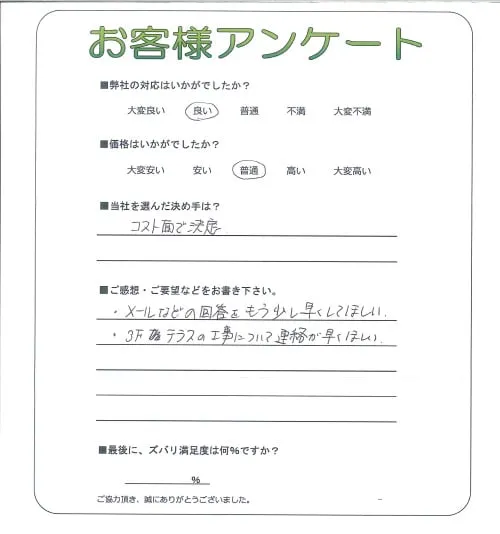 お客様アンケート
■弊社の対応はいかがでしたか？
大変良い 良い 普通 不満 大変不満
■価格はいかがでしたか？
大変安い 安い 普通 高い 大変高い
■当社を選んだ決め手は？
コスト面で決定
■ご感想・ご要望などをお書き下さい。
・メールなどの回答をもう少し早くしてほしい.
・3F テラスの工事について連絡が早くほしい.
■最後に、ズバリ満足度は何%ですか？
%
ご協力頂き、誠にありがとうございました。